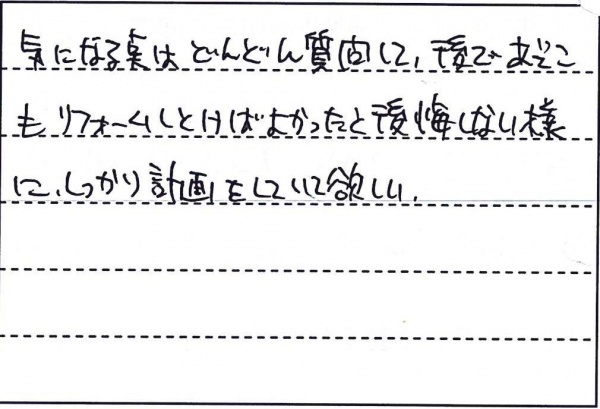 気になる点は どんどん質問して、後であそこ
も リフォームしとけばよかったと後悔しない様
に、しっかり計画をしていて欲しい。